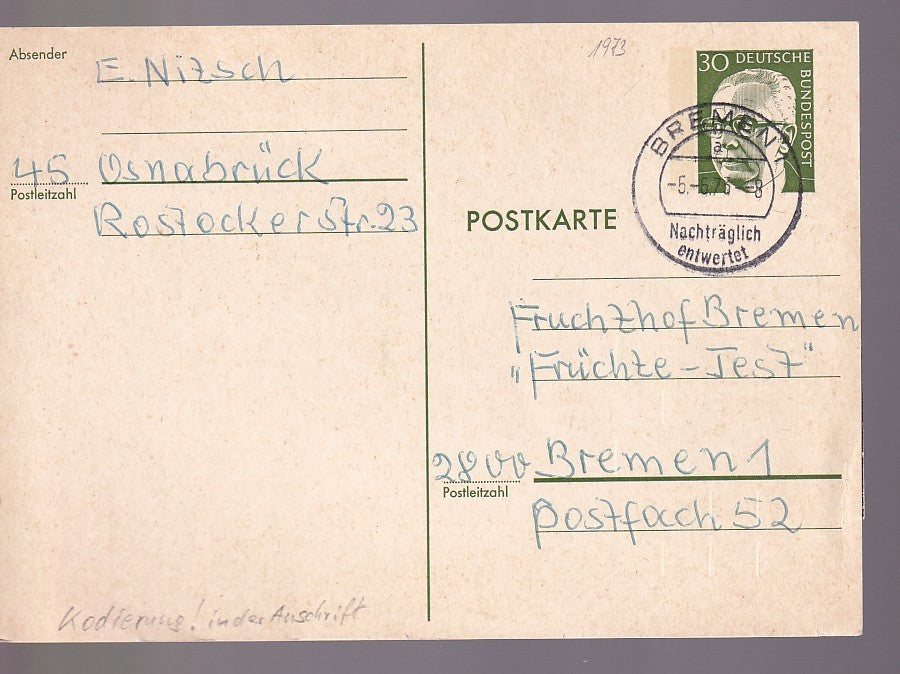 Absender
E. Nitzsch
45 Osnabrück
Postleitzahl
Rostocker Str. 23
1973
30 DEUTSCHE
BUNDESPOST
BREMEN 1
a
-5.-6.73-8
Nachträglich
entwertet
POSTKARTE
Fruchthof Bremen
„Früchte-Test"
2800 Bremen 1
Postleitzahl
Postfach 52
Kodierung! in der Anschrift